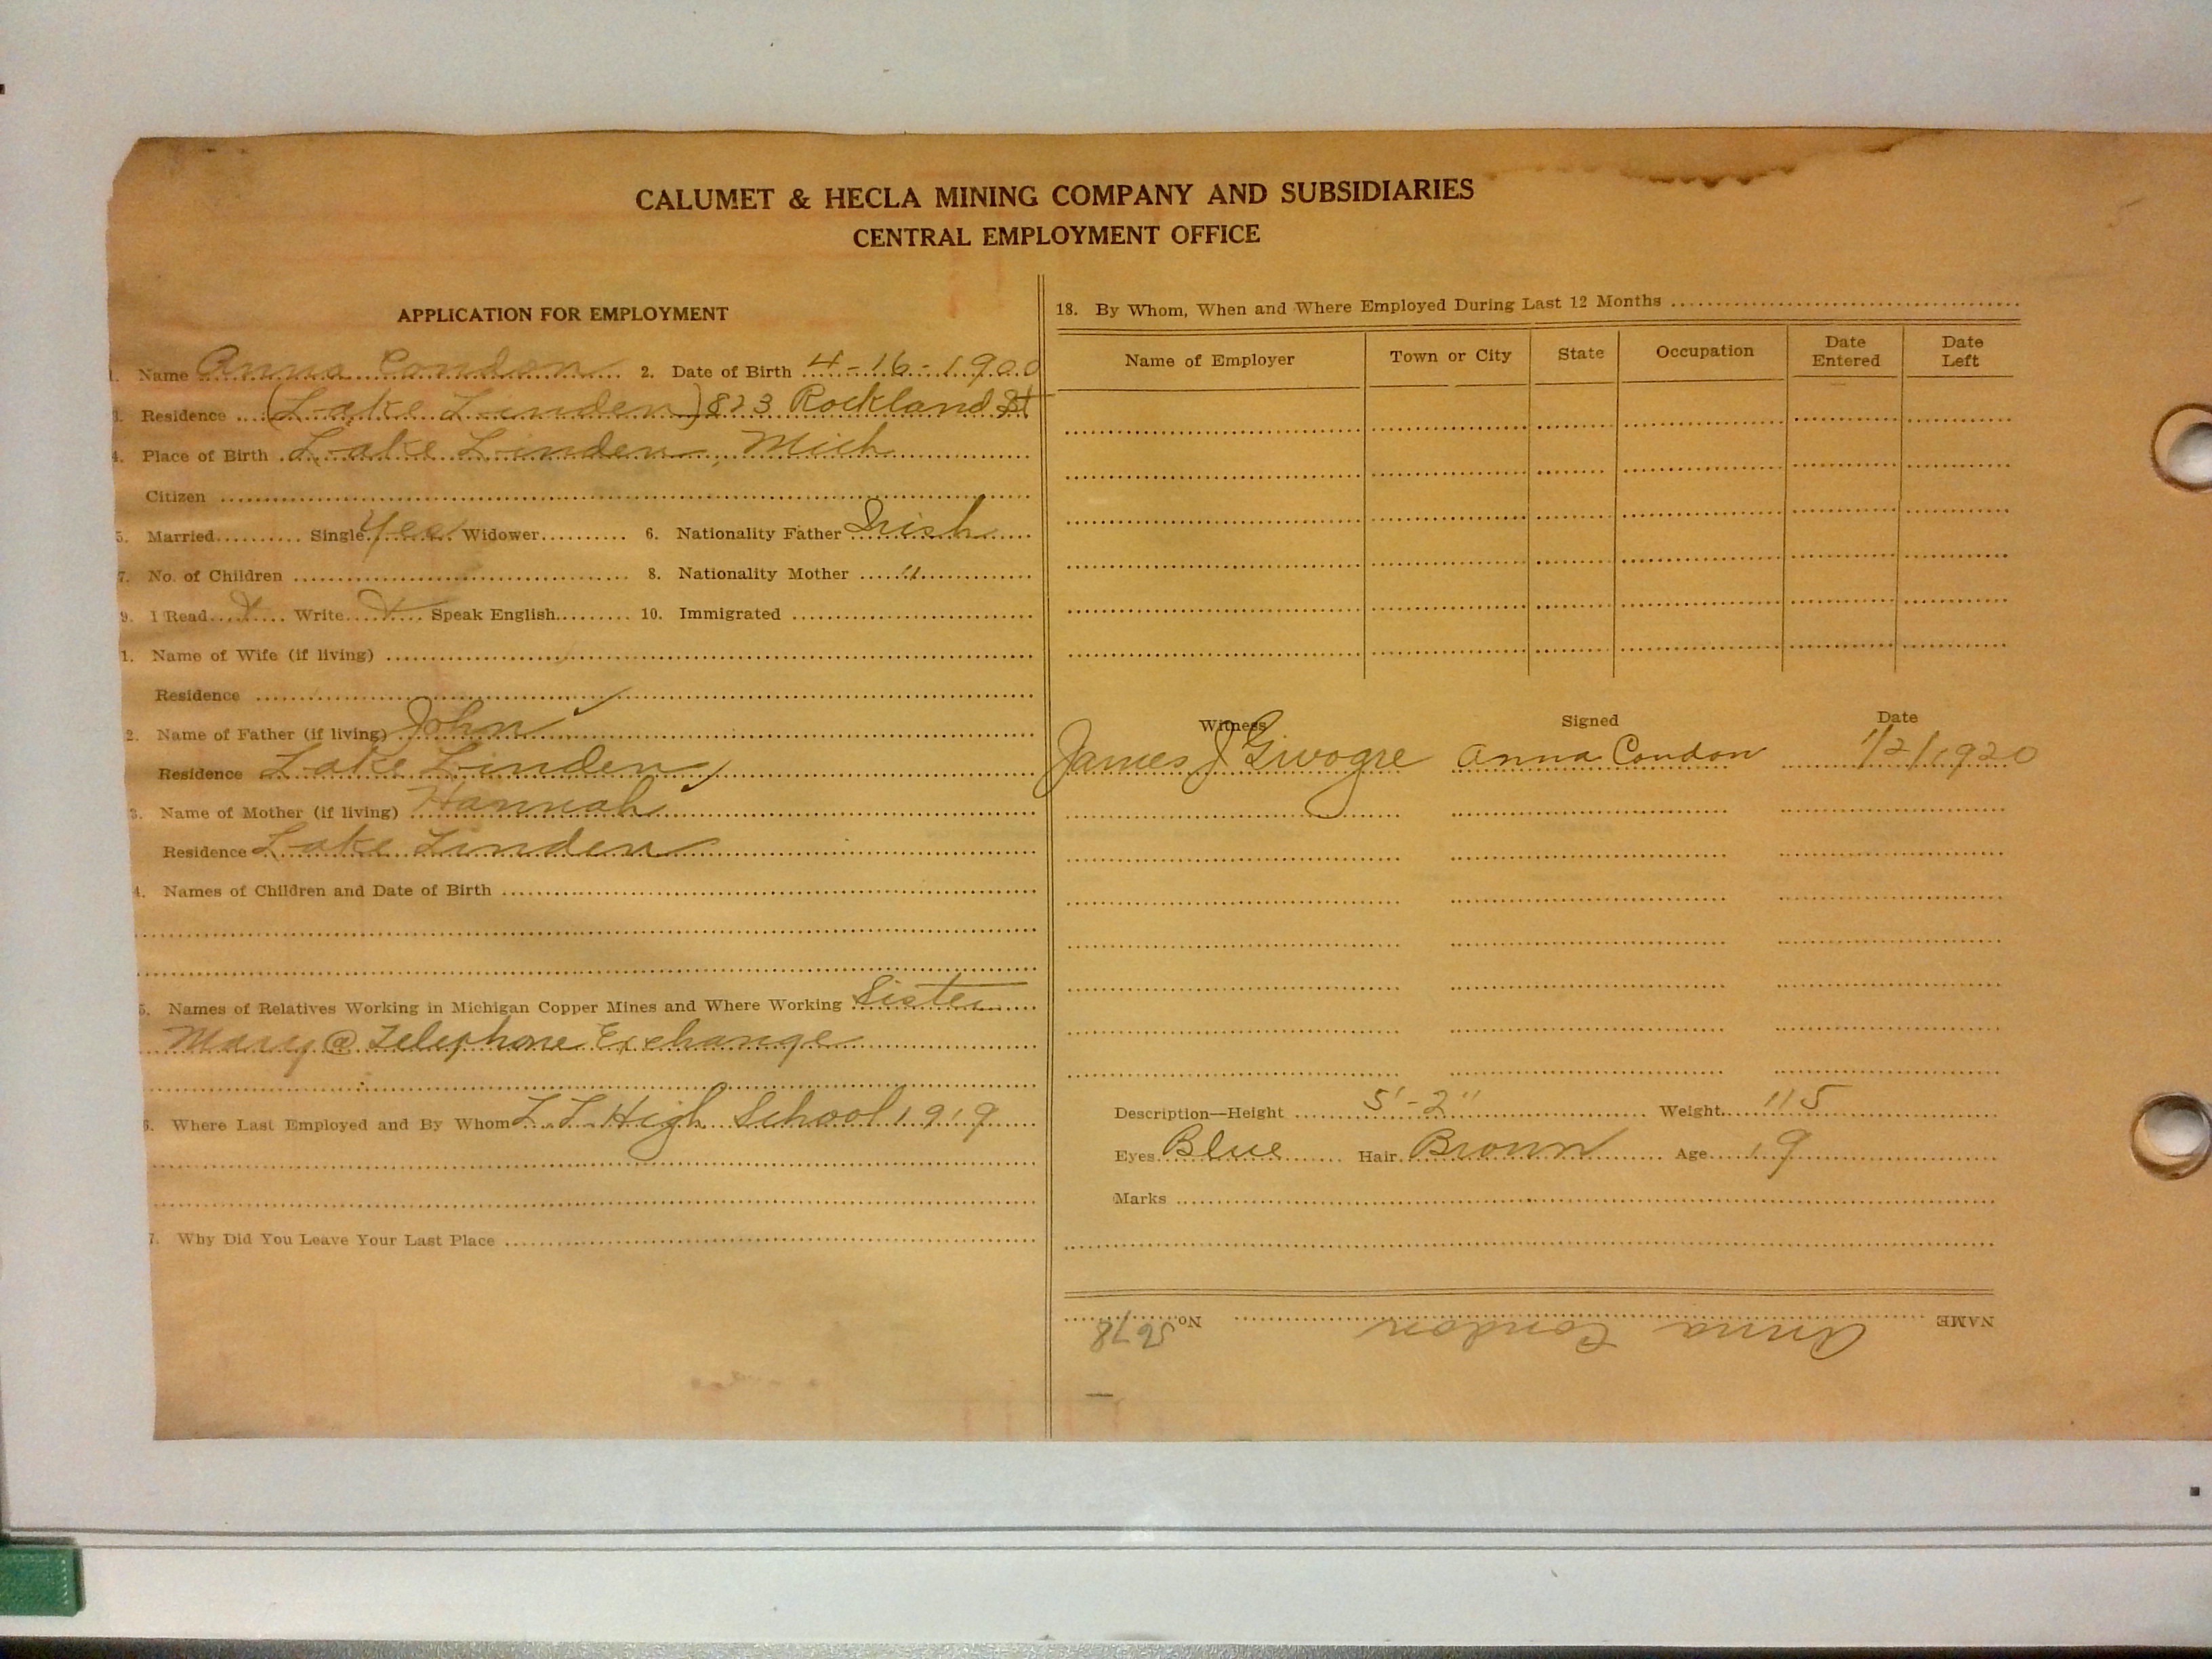 CALUMET & HECLA MINING COMPANY AND SUBSIDIARIES
CENTRAL EMPLOYMENT OFFICE
APPLICATION FOR EMPLOYMENT
1. Name Anna Condon 2. Date of Birth 4-16-1900
3. Residence (Lake Linden) 823 Rockland St
4. Place of Birth Lake Linden, Mich
Citizen
5. Married Single Yes Widower 6. Nationality Father Irish
7. No. of Children 8. Nationality Mother "
9. I Read X Write X Speak English 10. Immigrated
1. Name of Wife (if living)
Residence
2. Name of Father (if living) John
Residence Lake Linden
3. Name of Mother (if living) Hannah
Residence Lake Linden
4. Names of Children and Date of Birth
5. Names of Relatives Working in Michigan Copper Mines and Where Working Sister
Mary @ Telephone Exchange
6. Where Last Employed and By Whom L. L. High School 1919
7. Why Did You Leave Your Last Place
18. By Whom, When and Where Employed During Last 12 Months
Name of Employer Town or City State Occupation Date Entered Date Left
Witness Signed Date
James J Anna Condon 1/2/1920
Description—Height 5'-2" Weight 115
Eyes Blue Hair Brown Age 19
Marks
NAME Anna Condon No. 5678